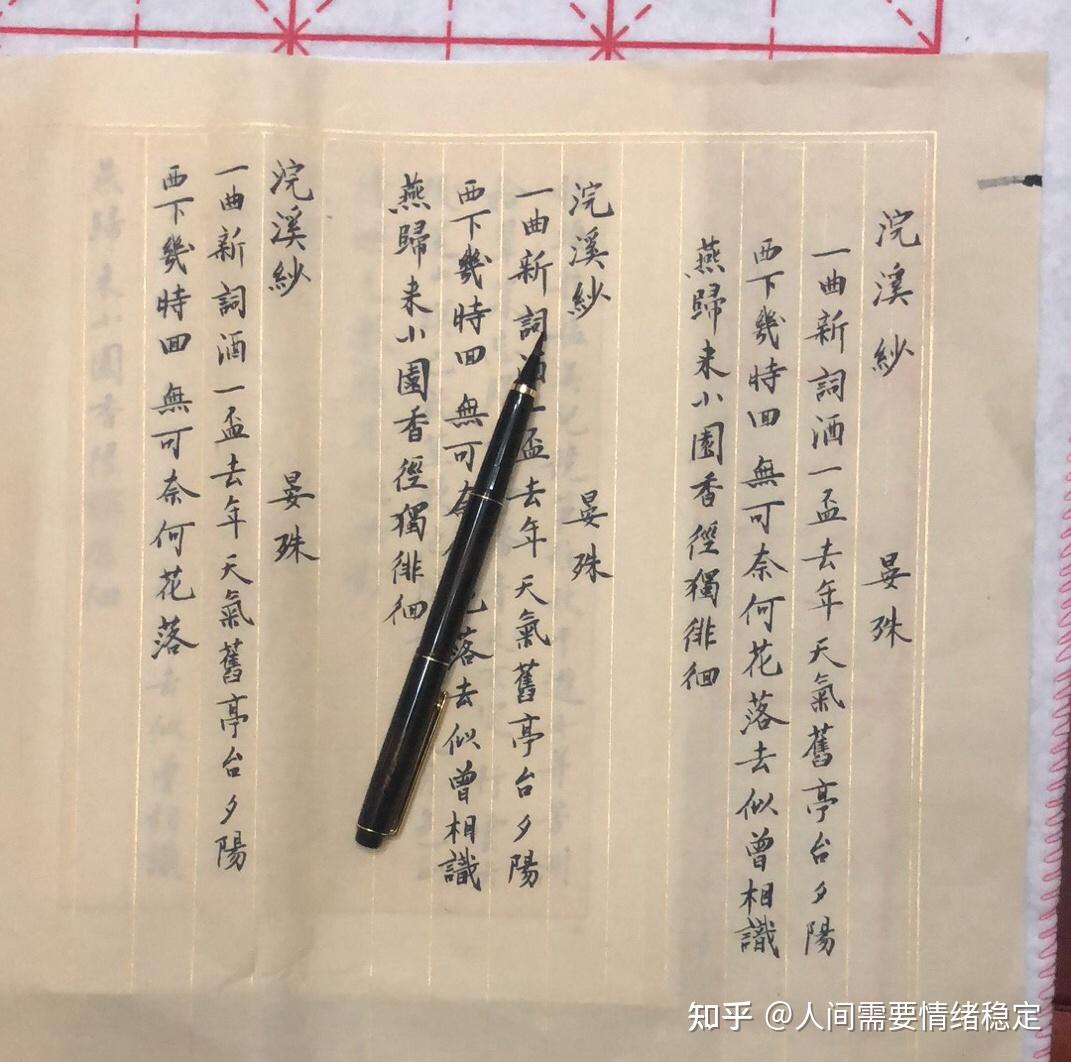 浣溪紗 晏殊
一曲新詞酒一盃去年天氣舊亭台夕陽
西下幾時回無可奈何花落去似曾相識
燕歸来小園香徑獨徘徊
浣溪紗 晏殊
一曲新詞酒一盃去年天氣舊亭台夕陽
西下幾時回無可奈何花落去似曾相識
燕歸来小園香徑獨徘徊
浣溪紗 晏殊
一曲新詞酒一盃去年天氣舊亭台夕陽
西下幾時回無可奈何花落
知乎 @人间需要情绪稳定